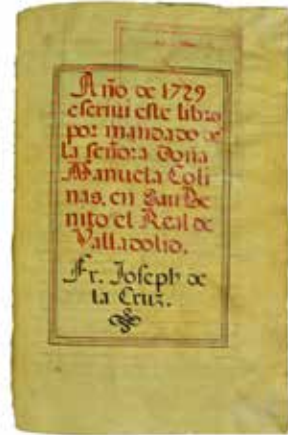 Año de 1729
escriui este libro
por mandado de
la señora Doña
Manuela Coli
nas, en San Be
nito el Real de
Valladolid.
Fr. Joseph de
la Cruz.